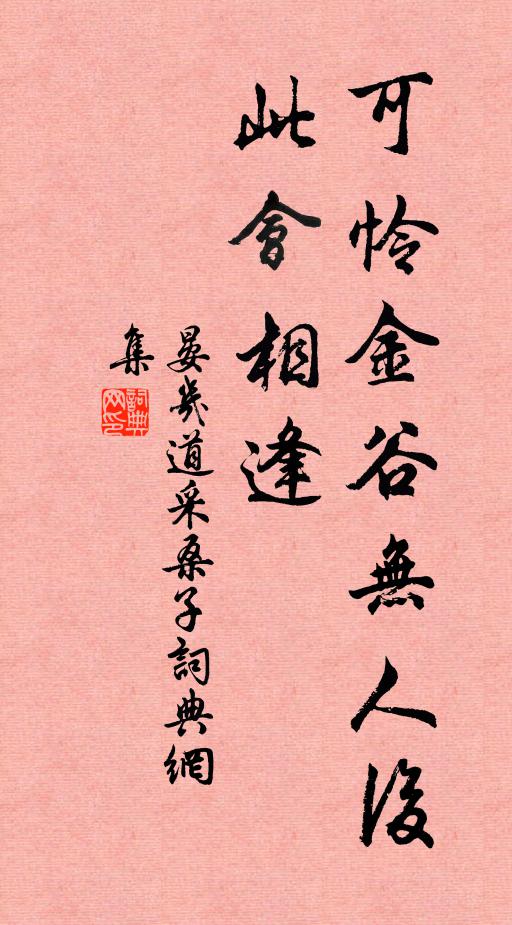 可怜金谷無人後
此會相逢
晏幾道采桑子詞典網
集
詞典
网印